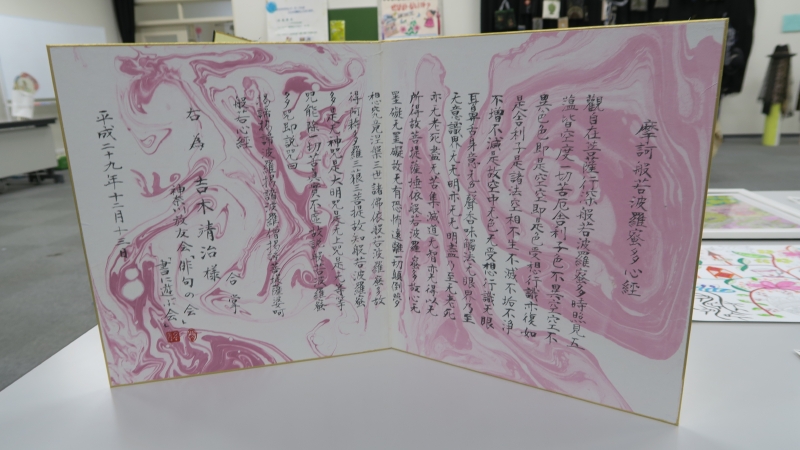 摩訶般若波羅蜜多心経
観自在菩薩行深般若波羅蜜多時照見五
蘊皆空度一切苦厄舎利子色不異空空不
異色色即是空空即是色受想行識亦復如
是舎利子是諸法空相不生不滅不垢不浄
不増不減是故空中无色无受想行識无眼
耳鼻舌身意无色声香味触法无眼界乃至
无意識界无无明亦无无明盡乃至无老死
亦无老死盡无苦集滅道无智亦无得以无
所得故菩提薩埵依般若波羅蜜多故心无
罣礙无罣礙故无有恐怖遠離一切顛倒夢
想究竟涅槃三世諸佛依般若波羅蜜多故
得阿耨多羅三藐三菩提故知般若波羅蜜
多是大神咒是大明咒是无上咒是无等等
咒能除一切苦真實不虚故説般若波羅蜜
多咒即説咒曰
羯諦羯諦波羅羯諦波羅僧羯諦菩提薩婆呵
般若心経
右為
吉木清治様
合掌
神奈川校友会「俳句の会」
「書に遊ぶ会」
平成二十九年十二月十三日